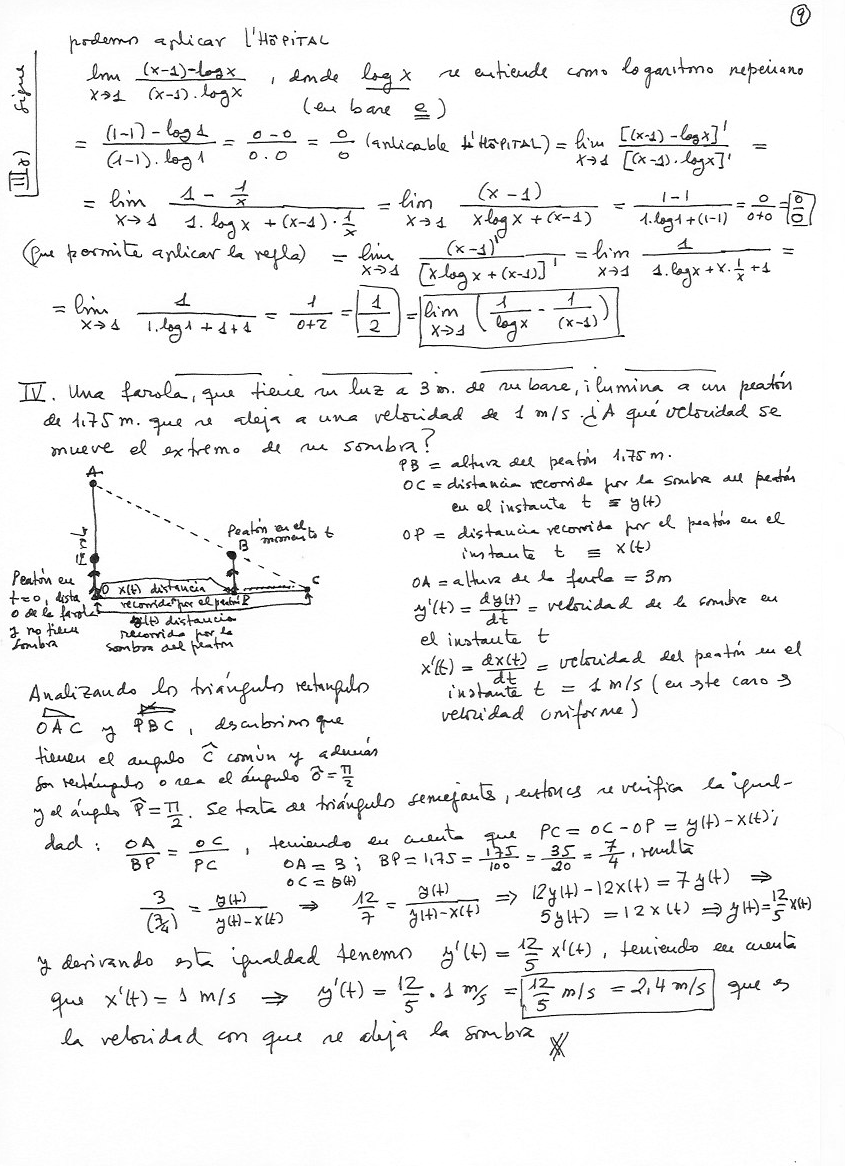 9
III) sigue
podemos aplicar L'HÔPITAL
lim x→1 (x-1)-log x / (x-1)·log x , donde log x se entiende como logaritmo neperiano
(en base e)
= (1-1)-log 1 / (1-1)·log 1 = 0-0 / 0·0 = 0/0 (aplicable L'HÔPITAL) = lim x→1 [(x-1)-log x]' / [(x-1)·log x]' =
= lim x→1 1 - 1/x / 1·log x + (x-1)·1/x = lim x→1 (x-1) / x log x + (x-1) = 1-1 / 1·log 1 + (1-1) = 0 / 0+0 = 0/0
(que permite aplicar la regla) = lim x→1 (x-1)' / [x log x + (x-1)]' = lim x→1 1 / 1·log x + x·1/x + 1 =
= lim x→1 1 / 1·log 1 + 1 + 1 = 1 / 0+2 = 1/2 = lim x→1 (1/log x - 1/(x-1))
IV. Una farola, que tiene su luz a 3 m. de su base, ilumina a un peatón
de 1,75 m. que se aleja a una velocidad de 1 m/s. ¿A qué velocidad se
mueve el extremo de su sombra?
A
Peatón en el
momento t
B
O x(t) distancia
recorrida por el peatón P
C
y(t) distancia
recorrida por la
sombra del peatón
Peatón en
t=0, dista
0 de la farola
y no tiene
sombra
PB = altura del peatón 1,75 m.
OC = distancia recorrida por la sombra del peatón
en el instante t ≡ y(t)
OP = distancia recorrida por el peatón en el
instante t ≡ x(t)
OA = altura de la farola = 3 m
y'(t) = dy(t)/dt = velocidad de la sombra en
el instante t
x'(t) = dx(t)/dt = velocidad del peatón en el
instante t = 1 m/s (en este caso es
velocidad uniforme)
Analizando los triángulos rectangulos
OAC y PBC, descubrimos que
tienen el angulo Ĉ común y además
son rectángulos o sea el ángulo Ô = π/2
y el ángulo P̂ = π/2. Se trata de triángulos semejantes, entonces se verifica la igual-
dad: OA/BP = OC/PC , teniendo en cuenta que PC = OC - OP = y(t) - x(t);
OA = 3; BP = 1,75 = 175/100 = 35/20 = 7/4, resulta
OC = y(t)
3/(7/4) = y(t) / y(t)-x(t) ⇒ 12/7 = y(t) / y(t)-x(t) ⇒ 12y(t) - 12x(t) = 7y(t) ⇒
5y(t) = 12x(t) ⇒ y(t) = 12/5 x(t)
y derivando esta igualdad tenemos y'(t) = 12/5 x'(t), teniendo en cuenta
que x'(t) = 1 m/s ⇒ y'(t) = 12/5 · 1 m/s = 12/5 m/s = 2,4 m/s que es
la velocidad con que se aleja la sombra